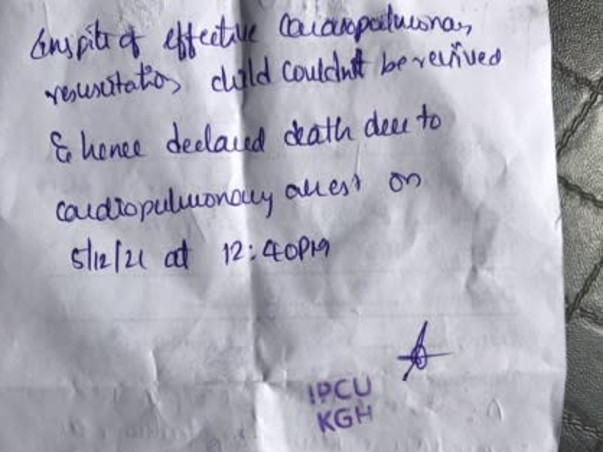 Inspite of effective Cardiopulmonary
resuscitation child Couldn't be revived
& hence declared death due to
cardiopulmonary arrest on
5/12/21 at 12:40PM
IPCU
KGH